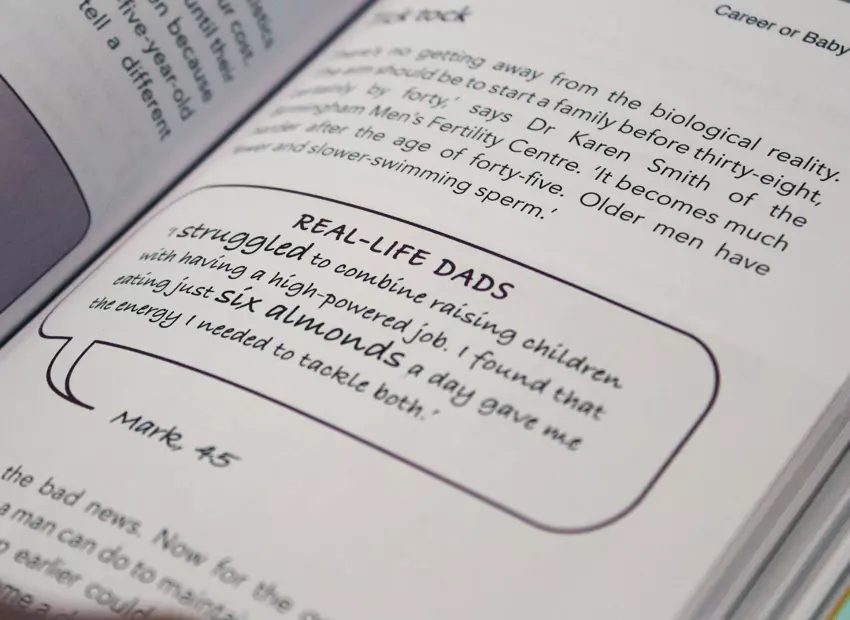 istics
ur cost.
until their
n because
-five-year-old
tell a different
Career or Baby
Tick tock
There's no getting away from the biological reality.
The aim should be to start a family before thirty-eight,
certainly by forty,' says Dr Karen Smith of the
Birmingham Men's Fertility Centre. 'It becomes much
harder after the age of forty-five. Older men have
fewer and slower-swimming sperm.'
REAL-LIFE DADS
'I struggled to combine raising children
with having a high-powered job. I found that
eating just six almonds a day gave me
the energy I needed to tackle both.'
Mark, 45
the bad news. Now for the
a man can do to maintai
earlier could
me a